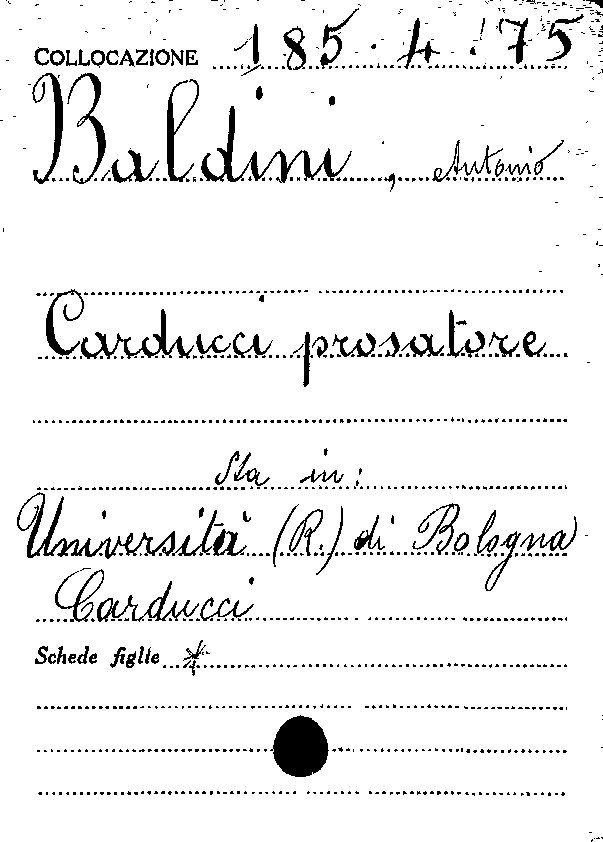 COLLOCAZIONE 185.4.75
Baldini, Antonio
Carducci prosatore
Sta in:
Università (R.) di Bologna
Carducci
Schede figlie *